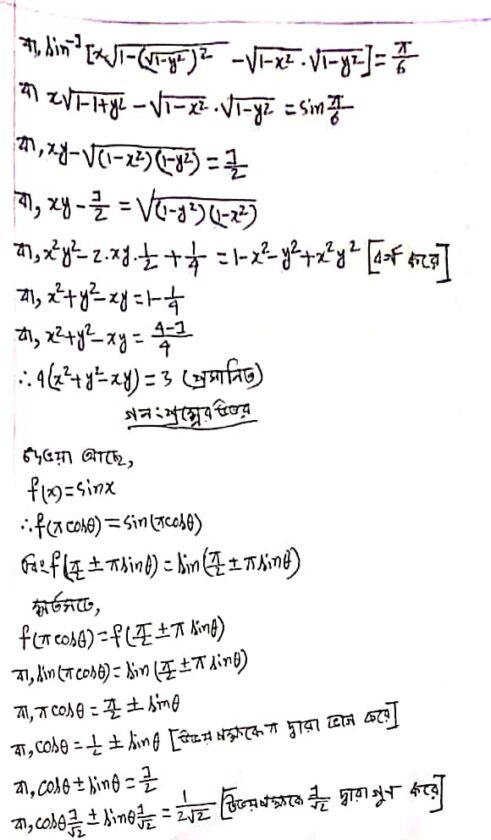 বা, sin⁻¹[x√(1-(√(1-y²))²) - √(1-x²) · √(1-y²)] = π/6
বা x√(1-1+y²) - √(1-x²) · √(1-y²) = sin π/6
বা, xy - √((1-x²)(1-y²)) = 1/2
বা, xy - 1/2 = √((1-y²)(1-x²))
বা, x²y² - 2·xy·1/2 + 1/4 = 1-x²-y²+x²y² [বর্গ করে]
বা, x²+y²-xy = 1-1/4
বা, x²+y²-xy = (4-1)/4
∴ 4(x²+y²-xy) = 3 (প্রমানিত)
গনং প্রশ্নের উত্তর
দেওয়া আছে,
f(x) = sinx
∴ f(π cosθ) = sin(π cosθ)
এবং f(π/2 ± π sinθ) = sin(π/2 ± π sinθ)
শর্তমতে,
f(π cosθ) = f(π/2 ± π sinθ)
বা, sin(π cosθ) = sin(π/2 ± π sinθ)
বা, π cosθ = π/2 ± sinθ
বা, cosθ = 1/2 ± sinθ [উভয় পক্ষকে π দ্বারা ভাগ করে]
বা, cosθ ± sinθ = 1/2
বা, cosθ 1/√2 ± sinθ 1/√2 = 1/(2√2) [উভয় পক্ষকে 1/√2 দ্বারা গুণ করে]